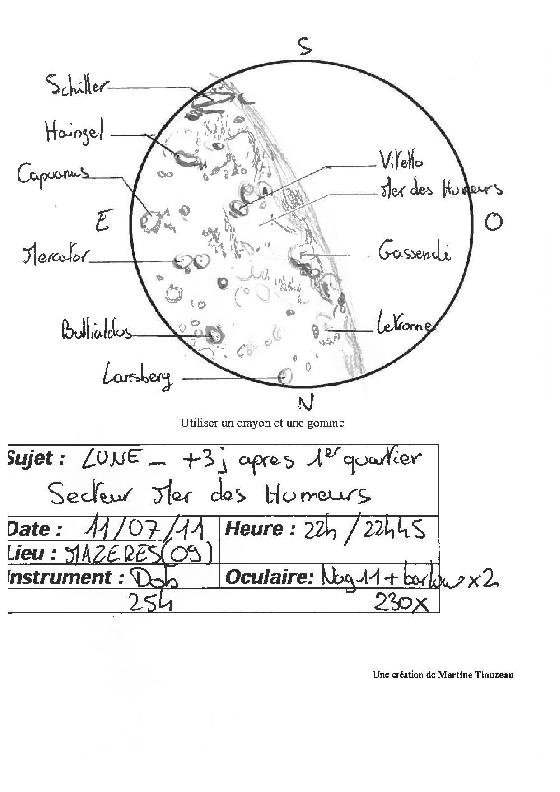 S
Schiller
Hainzel
Capuanus
Vitello
Mer des Humeurs
E
O
Mercator
Gassendi
Bullialdus
Letronne
Lansberg
N
Utiliser un crayon et une gomme
Sujet : LUNE - +3j apres 1er quartier
Secteur Mer des Humeurs
Date : 11/07/11 Heure : 22h / 22h45
Lieu : MAZERES(09)
Instrument : Dob Oculaire: Nag 11 + barlow x2
254 230x
Une création de Martine Tlouzeau